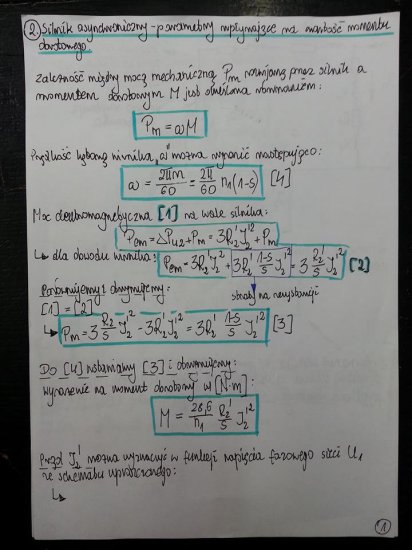 ② Silnik asynchroniczny - parametry wpływające na wartość momentu
obrotowego.
Zależność między mocą mechaniczną Pm rozwijaną przez silnik a
momentem obrotowym M jest określona wzorem:
Pm = ωM
Prędkość kątową wirnika "ω" można wyrazić następująco:
ω = 2πn/60 = 2π/60 n₁(1-s) [4]
Moc elektromagnetyczna [1] na wale silnika:
Pem = ΔPu2 + Pm = 3R₂'I₂'² + Pm
↳ dla obwodu wirnika: Pem = 3R₂'I₂'² + 3R₂' (1-s)/s I₂'² = 3 R₂'/s I₂'² [2]
Porównujemy i otrzymujemy: straty na rezystancji
[1] = [2]
↳ Pm = 3 R₂/s I₂'² - 3R₂'I₂'² = 3R₂' (1-s)/s I₂'² [3]
Do [4] wstawiamy [3] i otrzymujemy:
wyrażenie na moment obrotowy w [N·m]:
M = 28,6/n₁ R₂'/s I₂'²
Prąd I₂' można wyznaczyć w funkcji napięcia fazowego sieci U₁
ze schematu uproszczonego:
↳
①